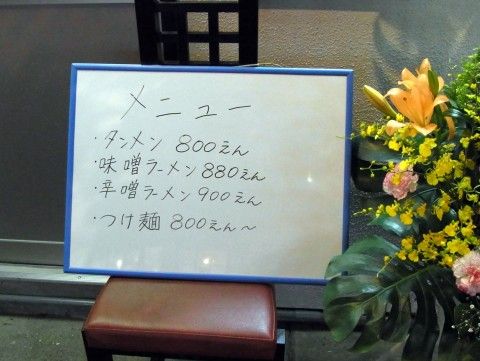 メニュー
・タンメン 800えん
・味噌ラーメン 880えん
・辛噌ラーメン 900えん
・つけ麺 800えん～